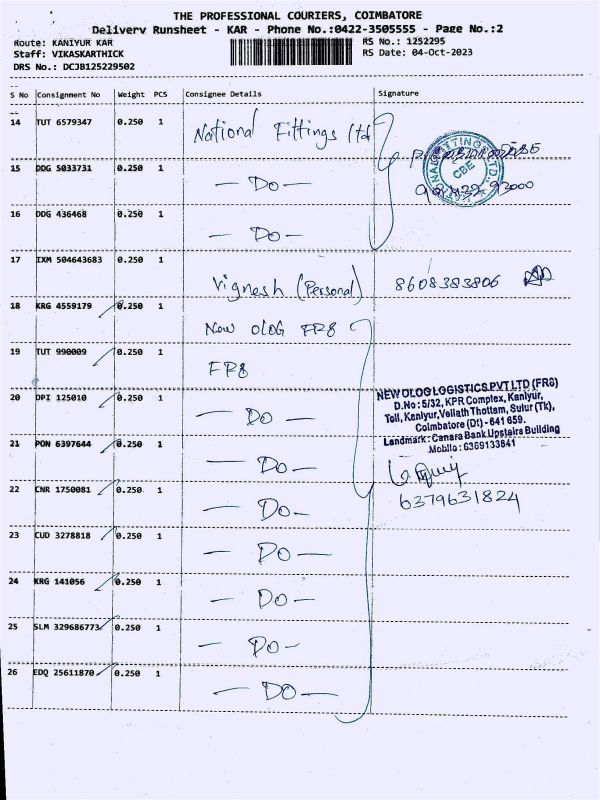 THE PROFESSIONAL COURIERS, COIMBATORE
Delivery Runsheet - KAR - Phone No.:0422-3505555 - Page No.:2
Route: KANIYUR KAR RS No.: 1252295
Staff: VIKASKARTHICK RS Date: 04-Oct-2023
DRS No.: DCJB125229502
S No Consignment No Weight PCS Consignee Details Signature
14 TUT 6579347 0.250 1 National Fittings Ltd
15 DDG 5033731 0.250 1 — Do —
CBE
16 DDG 436468 0.250 1 — Do —
17 IXM 504643683 0.250 1 Vignesh (Personal) 8608383806
18 KRG 4559179 0.250 1 New OLOG FR8
19 TUT 990009 0.250 1 FR8
20 DPI 125010 0.250 1 — Do —
NEW OLOG LOGISTICS PVT LTD (FR8)
D.No : 5/32, KPR Complex, Kaniyur,
Toll, Kaniyur, Vellath Thottam, Sulur (Tk),
Coimbatore (Dt) - 641 659.
Landmark : Canara Bank Upstairs Building
Mobile : 6369133841
21 PON 6397644 0.250 1 — Do —
22 CNR 1750081 0.250 1 — Do — 6379631824
23 CUD 3278818 0.250 1 — Do —
24 KRG 141056 0.250 1 — Do —
25 SLM 329686773 0.250 1 — Do —
26 EDQ 25611870 0.250 1 — Do —